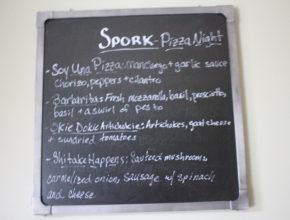 SPORK-Pizza Night
- Soy Una Pizza: manchego + garlic sauce
Chorizo, peppers + cilantro
- Barbaritas Fresh mozzarella, basil, prosciutto,
basil + a swirl of pesto
- Okie Dokie Artichokie: Artichokes, goat cheese
+ sundried tomatoes
- Shitake Happens: Sauteed mushrooms,
carmalized onion, Sausage w/ Spinach
and cheese